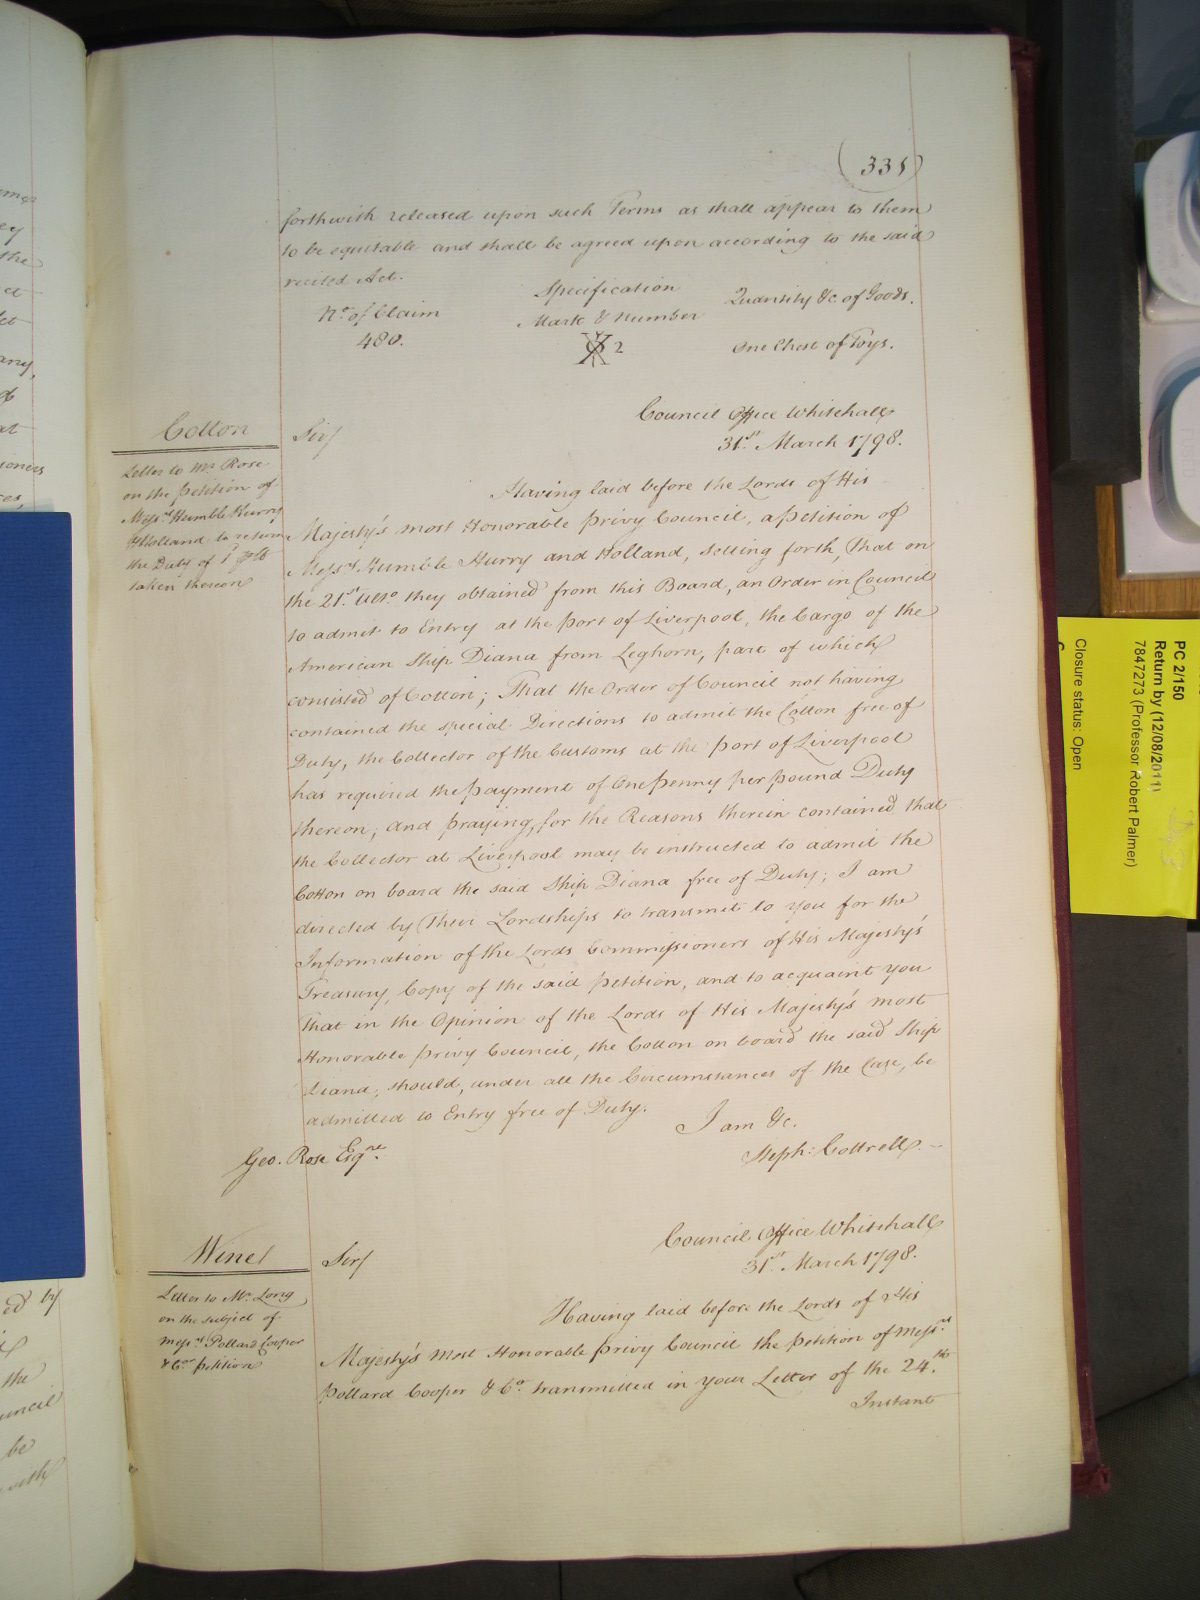 (335)
forthwith released upon such Terms as shall appear to them
to be equitable and shall be agreed upon according to the said
recited Act.
No. of Claim
Specification
Mark & Number
Quantity &c. of Goods.
480.
2
One Chest of Toys.
Cotton
Letter to Mr. Rose
on the Petition of
Messrs. Humble Hurry
& Holland to return
the Duty of 1d
taken thereon
Council Office Whitehall
31st. March 1798.
Sir/
Having laid before the Lords of His
Majesty's most Honorable Privy Council, a Petition of
Messrs. Humble Hurry and Holland, setting forth, That on
the 21st. Ulto. they obtained from this Board, an Order in Council
to admit to Entry at the Port of Liverpool, the Cargo of the
American Ship Diana from Leghorn, part of which
consisted of Cotton; That the Order of Council not having
contained the special Directions to admit the Cotton free of
Duty, the Collector of the Customs at the Port of Liverpool
has required the payment of One Penny per pound Duty
thereon; and praying, for the Reasons therein contained that
the Collector at Liverpool may be instructed to admit the
Cotton on board the said Ship Diana free of Duty; I am
directed by Their Lordships to transmit to you for the
Information of the Lords Commissioners of His Majesty's
Treasury, Copy of the said Petition, and to acquaint you
That in the Opinion of the Lords of His Majesty's most
Honorable Privy Council, the Cotton on board the said Ship
Diana, should, under all the Circumstances of the Case, be
admitted to Entry free of Duty.
I am &c.
Steph: Cottrell.
Geo. Rose Esqre.
Wine/
Letter to Mr. Long
on the subject of
Messrs. Pollard Cooper
& Co. Petition
Council Office Whitehall
31st. March 1798.
Sir/
Having laid before the Lords of His
Majesty's Most Honorable Privy Council the Petition of Messrs.
Pollard Cooper & Co. transmitted in your Letter of the 24th.
Instant
PC 2/150
Return by (12/08/2011)
7847273 (Professor Robert Palmer)
Closure status: Open